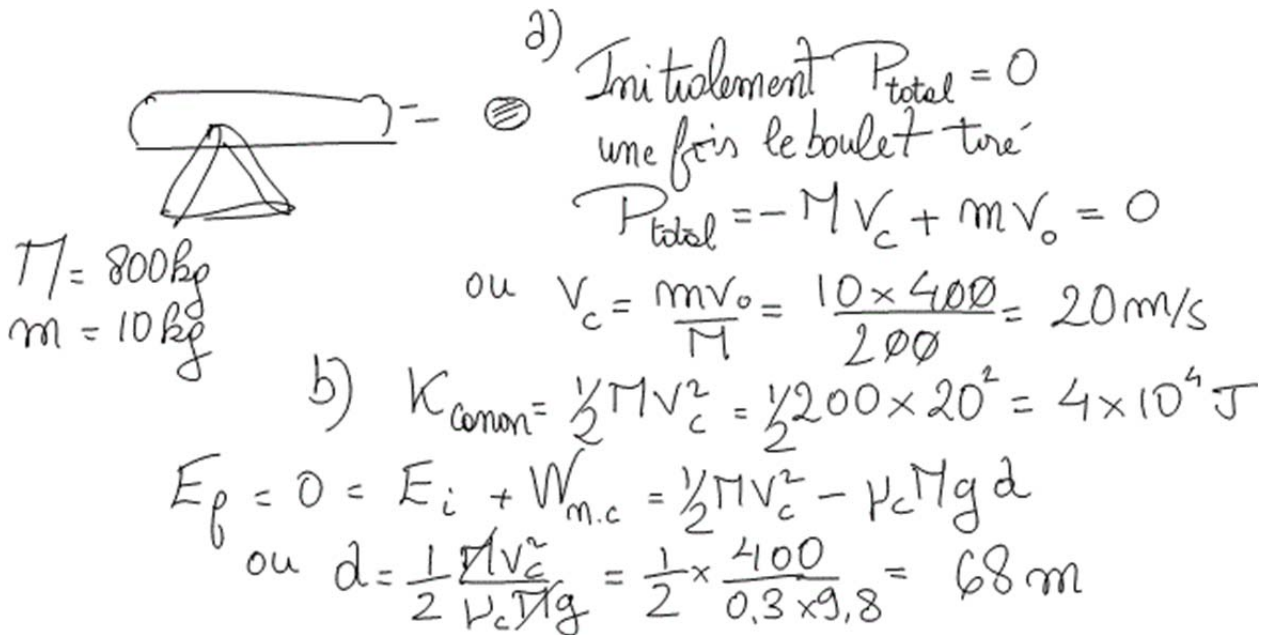 a) Initialement P_total = 0
une fois le boulet tiré
P_total = - M V_c + m V_o = 0
M = 800 kg
m = 10 kg
ou V_c = mV_o / M = 10 × 400 / 200 = 20 m/s
b) K_canon = 1/2 M V_c² = 1/2 200 × 20² = 4 × 10⁴ J
E_f = 0 = E_i + W_n.c = 1/2 M V_c² - μ_c M g d
ou d = 1/2 M V_c² / μ_c M g = 1/2 × 400 / 0,3 × 9,8 = 68 m